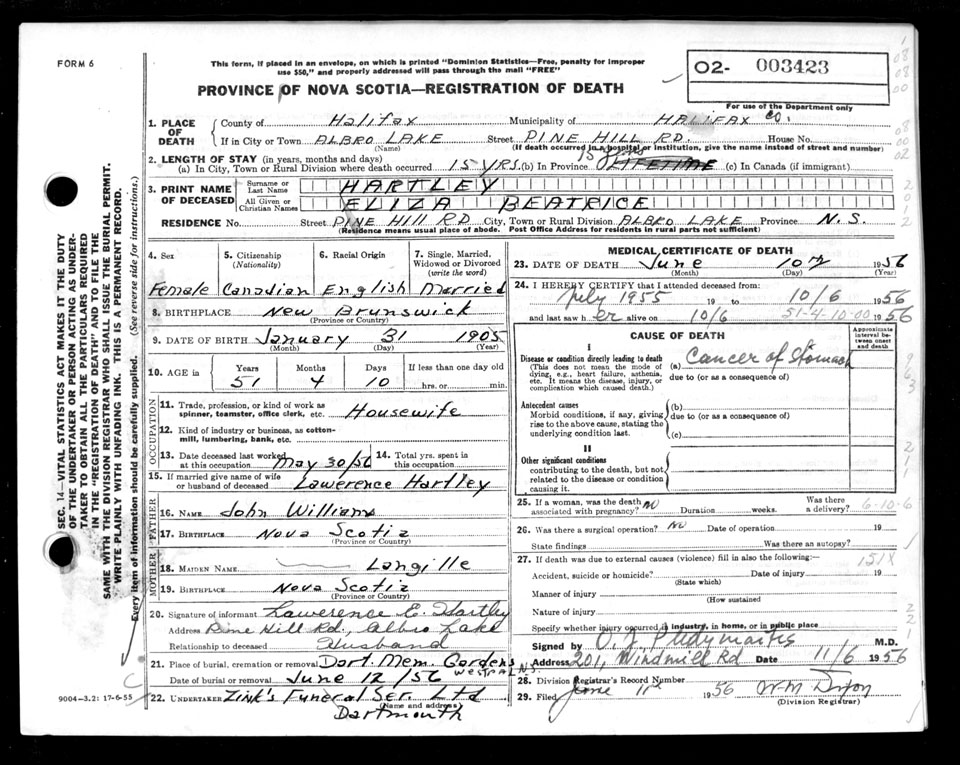 FORM 6
This form, if placed in an envelope, on which is printed "Dominion Statistics—Free, penalty for improper
use $50," and properly addressed will pass through the mail "FREE"
02- 003423
For use of the Department only
PROVINCE OF NOVA SCOTIA—REGISTRATION OF DEATH
SEC. 14—VITAL STATISTICS ACT MAKES IT THE DUTY
OF THE UNDERTAKER OR PERSON ACTING AS UNDER-
TAKER TO OBTAIN ALL THE PARTICULARS REQUIRED
IN THE "REGISTRATION OF DEATH" AND TO FILE THE
SAME WITH THE DIVISION REGISTRAR WHO SHALL ISSUE THE BURIAL PERMIT.
WRITE PLAINLY WITH UNFADING INK. THIS IS A PERMANENT RECORD.
Every item of information should be carefully supplied. (See reverse side for instructions.)
1. PLACE OF DEATH County of Halifax Municipality of HALIFAX CO.
If in City or Town ALBRO LAKE Street PINE HILL RD. House No.
(Name) (If death occurred in a hospital or institution, give the name instead of street and number)
2. LENGTH OF STAY (in years, months and days)
(a) In City, Town or Rural Division where death occurred 15 YRS. (b) In Province LIFETIME (c) In Canada (if immigrant)
3. PRINT NAME OF DECEASED Surname or Last Name HARTLEY
All Given or Christian Names ELIZA BEATRICE
RESIDENCE No. Street PINE HILL RD City, Town or Rural Division ALBRO LAKE Province N.S.
(Residence means usual place of abode. Post Office Address for residents in rural parts not sufficient)
4. Sex 5. Citizenship (Nationality) 6. Racial Origin 7. Single, Married, Widowed or Divorced (write the word)
Female Canadian English Married
8. BIRTHPLACE New Brunswick
(Province or Country)
9. DATE OF BIRTH January 31 1905
(Month) (Day) (Year)
10. AGE in Years Months Days If less than one day old
51 4 10 hrs. or min.
OCCUPATION
11. Trade, profession, or kind of work as
spinner, teamster, office clerk, etc. Housewife
12. Kind of industry or business, as cotton-
mill, lumbering, bank, etc.
13. Date deceased last worked at this occupation May 30/56 14. Total yrs. spent in this occupation
15. If married give name of wife or husband of deceased Lawerence Hartley
FATHER
16. NAME John Williams
17. BIRTHPLACE Nova Scotia
(Province or Country)
MOTHER
18. MAIDEN NAME Langille
19. BIRTHPLACE Nova Scotia
(Province or Country)
20. Signature of informant Lawerence E. Hartley
Address Pine Hill Rd., Albro Lake
Relationship to deceased Husband
21. Place of burial, cremation or removal Dart. Mem. Gardens
WESTPHAL N.S.
Date of burial or removal June 12/56
22. UNDERTAKER Zink's Funeral Ser. Ltd
(Name and address)
Dartmouth
9004-3.2: 17-6-55
MEDICAL CERTIFICATE OF DEATH
23. DATE OF DEATH June 10th 1956
(Month) (Day) (Year)
24. I HEREBY CERTIFY that I attended deceased from
July 1955 19 to 10/6 1956
and last saw her alive on 10/6 51-4-10-00 1956
CAUSE OF DEATH
Approximate interval between onset and death
I
Disease or condition directly leading to death
(This does not mean the mode of
dying, e.g., heart failure, asthenia,
etc. It means the disease, injury, or
complication which caused death.)
(a) Cancer of Stomach
due to (or as a consequence of)
Antecedent causes
Morbid conditions, if any, giving
rise to the above cause, stating the
underlying condition last.
(b)
due to (or as a consequence of)
(c)
II
Other significant conditions
contributing to the death, but not
related to the disease or condition
causing it.
25. If a woman, was the death associated with pregnancy? no Duration weeks. Was there a delivery? 6-10-6
26. Was there a surgical operation? No Date of operation 19
State findings Was there an autopsy?
27. If death was due to external causes (violence) fill in also the following: 151X
Accident, suicide or homicide? Date of injury 19
(State which)
Manner of injury
(How sustained
Nature of injury
Specify whether injury occurred in industry, in home, or in public place
Signed by M.D.
Address 201, Windmill Rd Date 11/6 1956
28. Division Registrar's Record Number
29. Filed June 11th 1956 W.M. Dixon
(Division Registrar)